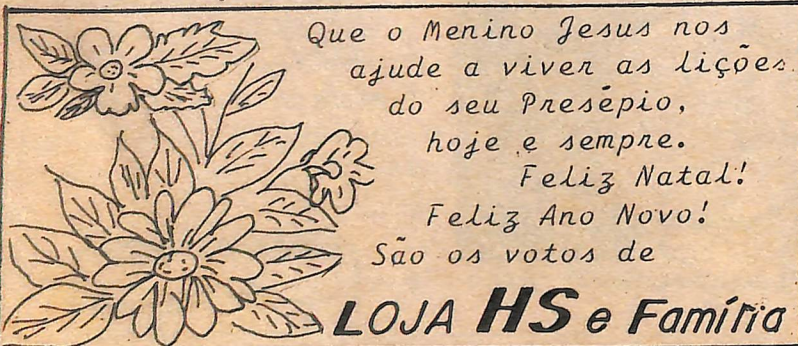 Que o Menino Jesus nos
ajude a viver as lições
do seu Presépio,
hoje e sempre.
Feliz Natal!
Feliz Ano Novo!
São os votos de
LOJA HS e Família